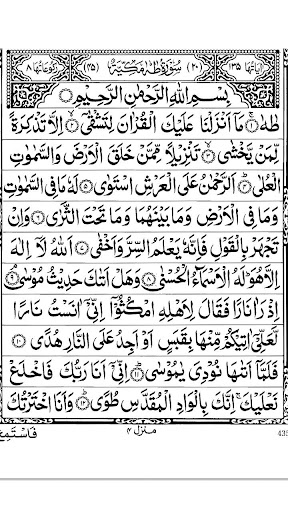 اٰیَاتُهَا ۱۳۵ (۲۰) سُوْرَةُ طٰهٰ مَكِّيَّةٌ (۴۵) رُكُوْعَاتُهَا ۸
بِسْمِ اللّٰهِ الرَّحْمٰنِ الرَّحِيْمِ
طٰهٰ ۚ﴿۱﴾ مَاۤ اَنْزَلْنَا عَلَيْكَ الْقُرْاٰنَ لِتَشْقٰۤى ۙ﴿۲﴾ اِلَّا تَذْكِرَةً
لِّمَنْ يَّخْشٰى ۙ﴿۳﴾ تَنْزِيْلًا مِّمَّنْ خَلَقَ الْاَرْضَ وَالسَّمٰوٰتِ
الْعُلٰى ؕ﴿۴﴾ اَلرَّحْمٰنُ عَلَى الْعَرْشِ اسْتَوٰى ﴿۵﴾ لَهٗ مَا فِى السَّمٰوٰتِ
وَمَا فِى الْاَرْضِ وَمَا بَيْنَهُمَا وَمَا تَحْتَ الثَّرٰى ﴿۶﴾ وَاِنْ
تَجْهَرْ بِالْقَوْلِ فَاِنَّهٗ يَعْلَمُ السِّرَّ وَاَخْفٰى ﴿۷﴾ اَللّٰهُ لَاۤ اِلٰهَ
اِلَّا هُوَ ؕ لَهُ الْاَسْمَآءُ الْحُسْنٰى ﴿۸﴾ وَهَلْ اَتٰىكَ حَدِيْثُ مُوْسٰى ۘ﴿۹﴾
اِذْ رَاٰ نَارًا فَقَالَ لِاَهْلِهِ امْكُثُوْۤا اِنِّيْۤ اٰنَسْتُ نَارًا
لَّعَلِّيْۤ اٰتِيْكُمْ مِّنْهَا بِقَبَسٍ اَوْ اَجِدُ عَلَى النَّارِ هُدًى ﴿۱۰﴾
فَلَمَّاۤ اَتٰىهَا نُوْدِيَ يٰمُوْسٰى ؕ﴿۱۱﴾ اِنِّيْۤ اَنَا رَبُّكَ فَاخْلَعْ
نَعْلَيْكَ ۚ اِنَّكَ بِالْوَادِ الْمُقَدَّسِ طُوًى ؕ﴿۱۲﴾ وَاَنَا اخْتَرْتُكَ
منزل ۴
فَاسْتَمِعْ